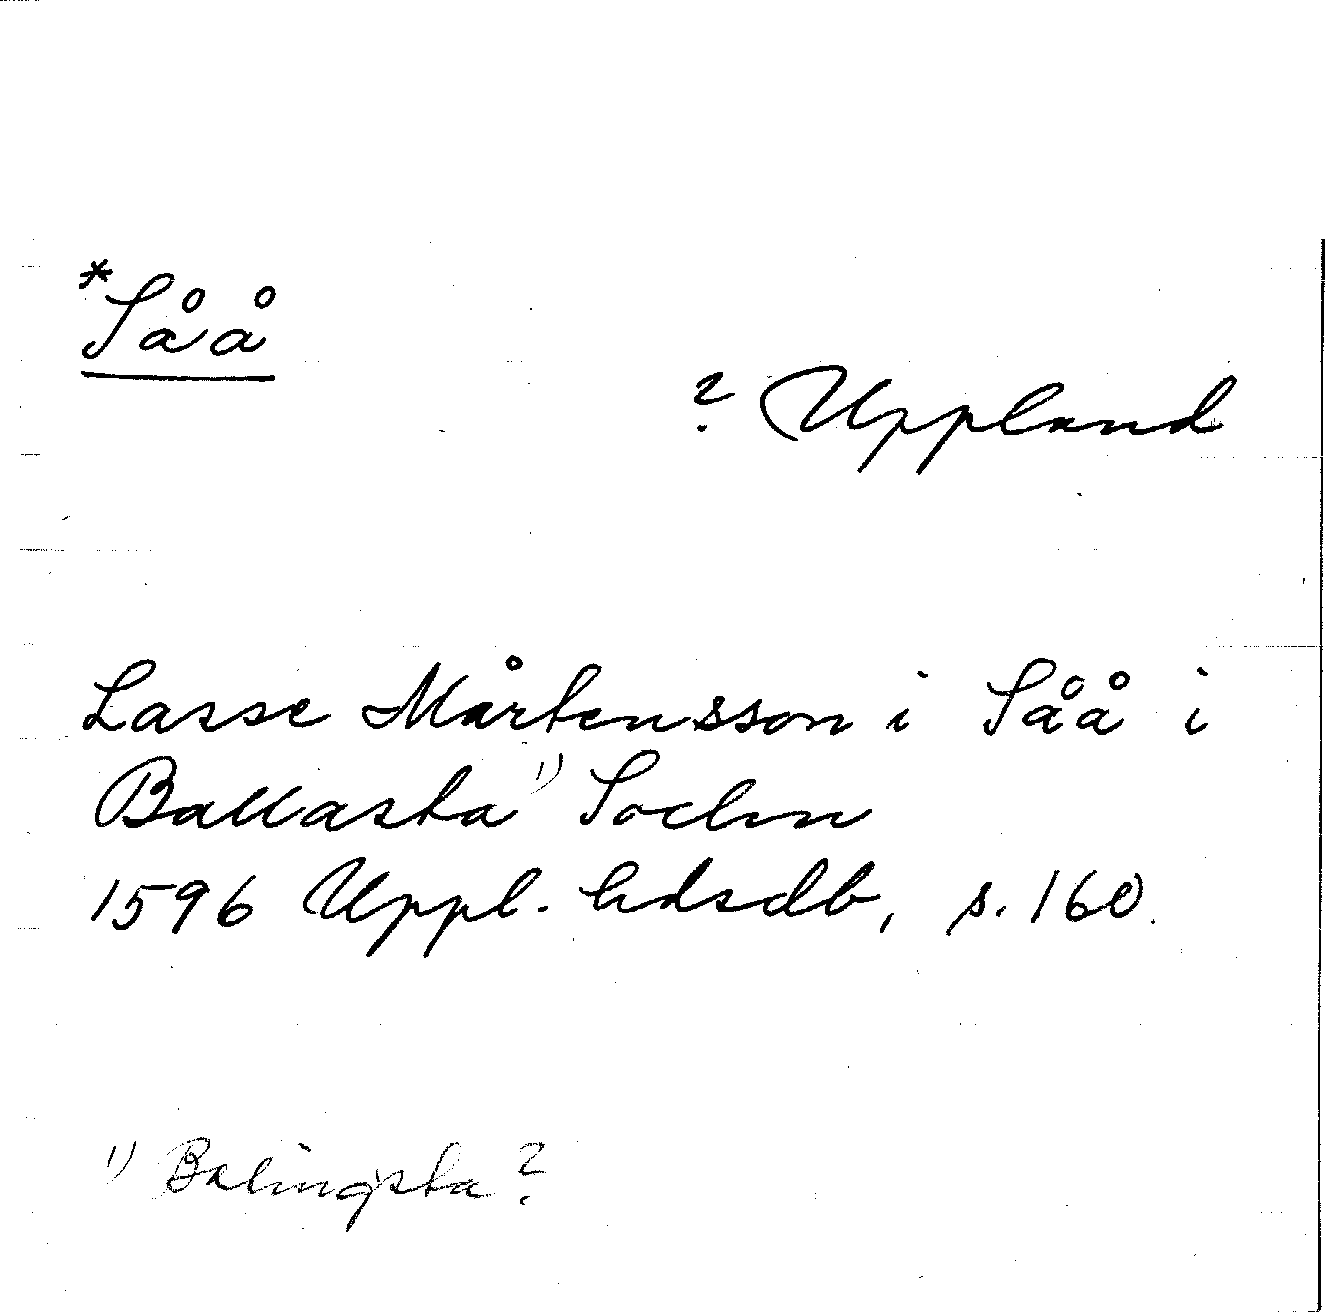 *Såå
? Uppland
Lasse Mårtensson i Såå i
Ballasta 1) Sochn
1596 Uppl. hdsdb, s. 160.
1) Balingsta?